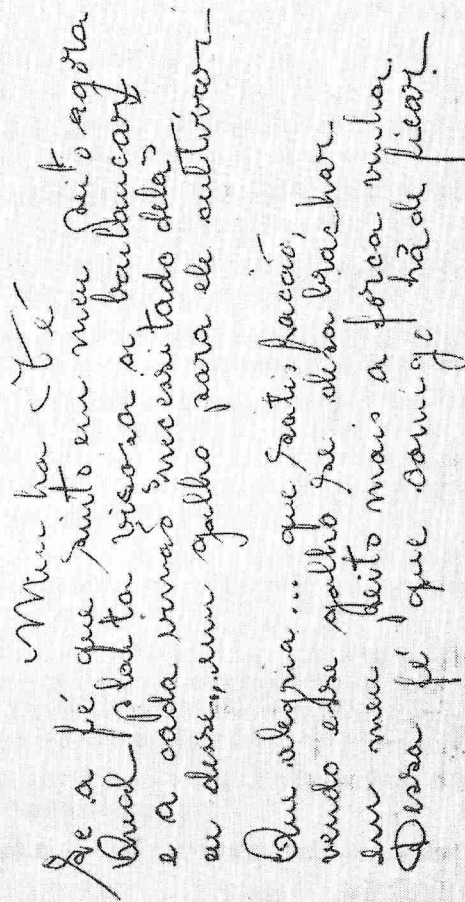 Minha Fé
Se a fé que sinto em meu peito agora
Qual planta viçosa a balançar
e a cada irmão necessitado dela
eu desse, um galho para ele cultivar
Que alegria... que satisfação,
vendo esse galho se desabrochar
em meu peito mais a força vinha.
Dessa fé que comigo há de ficar.